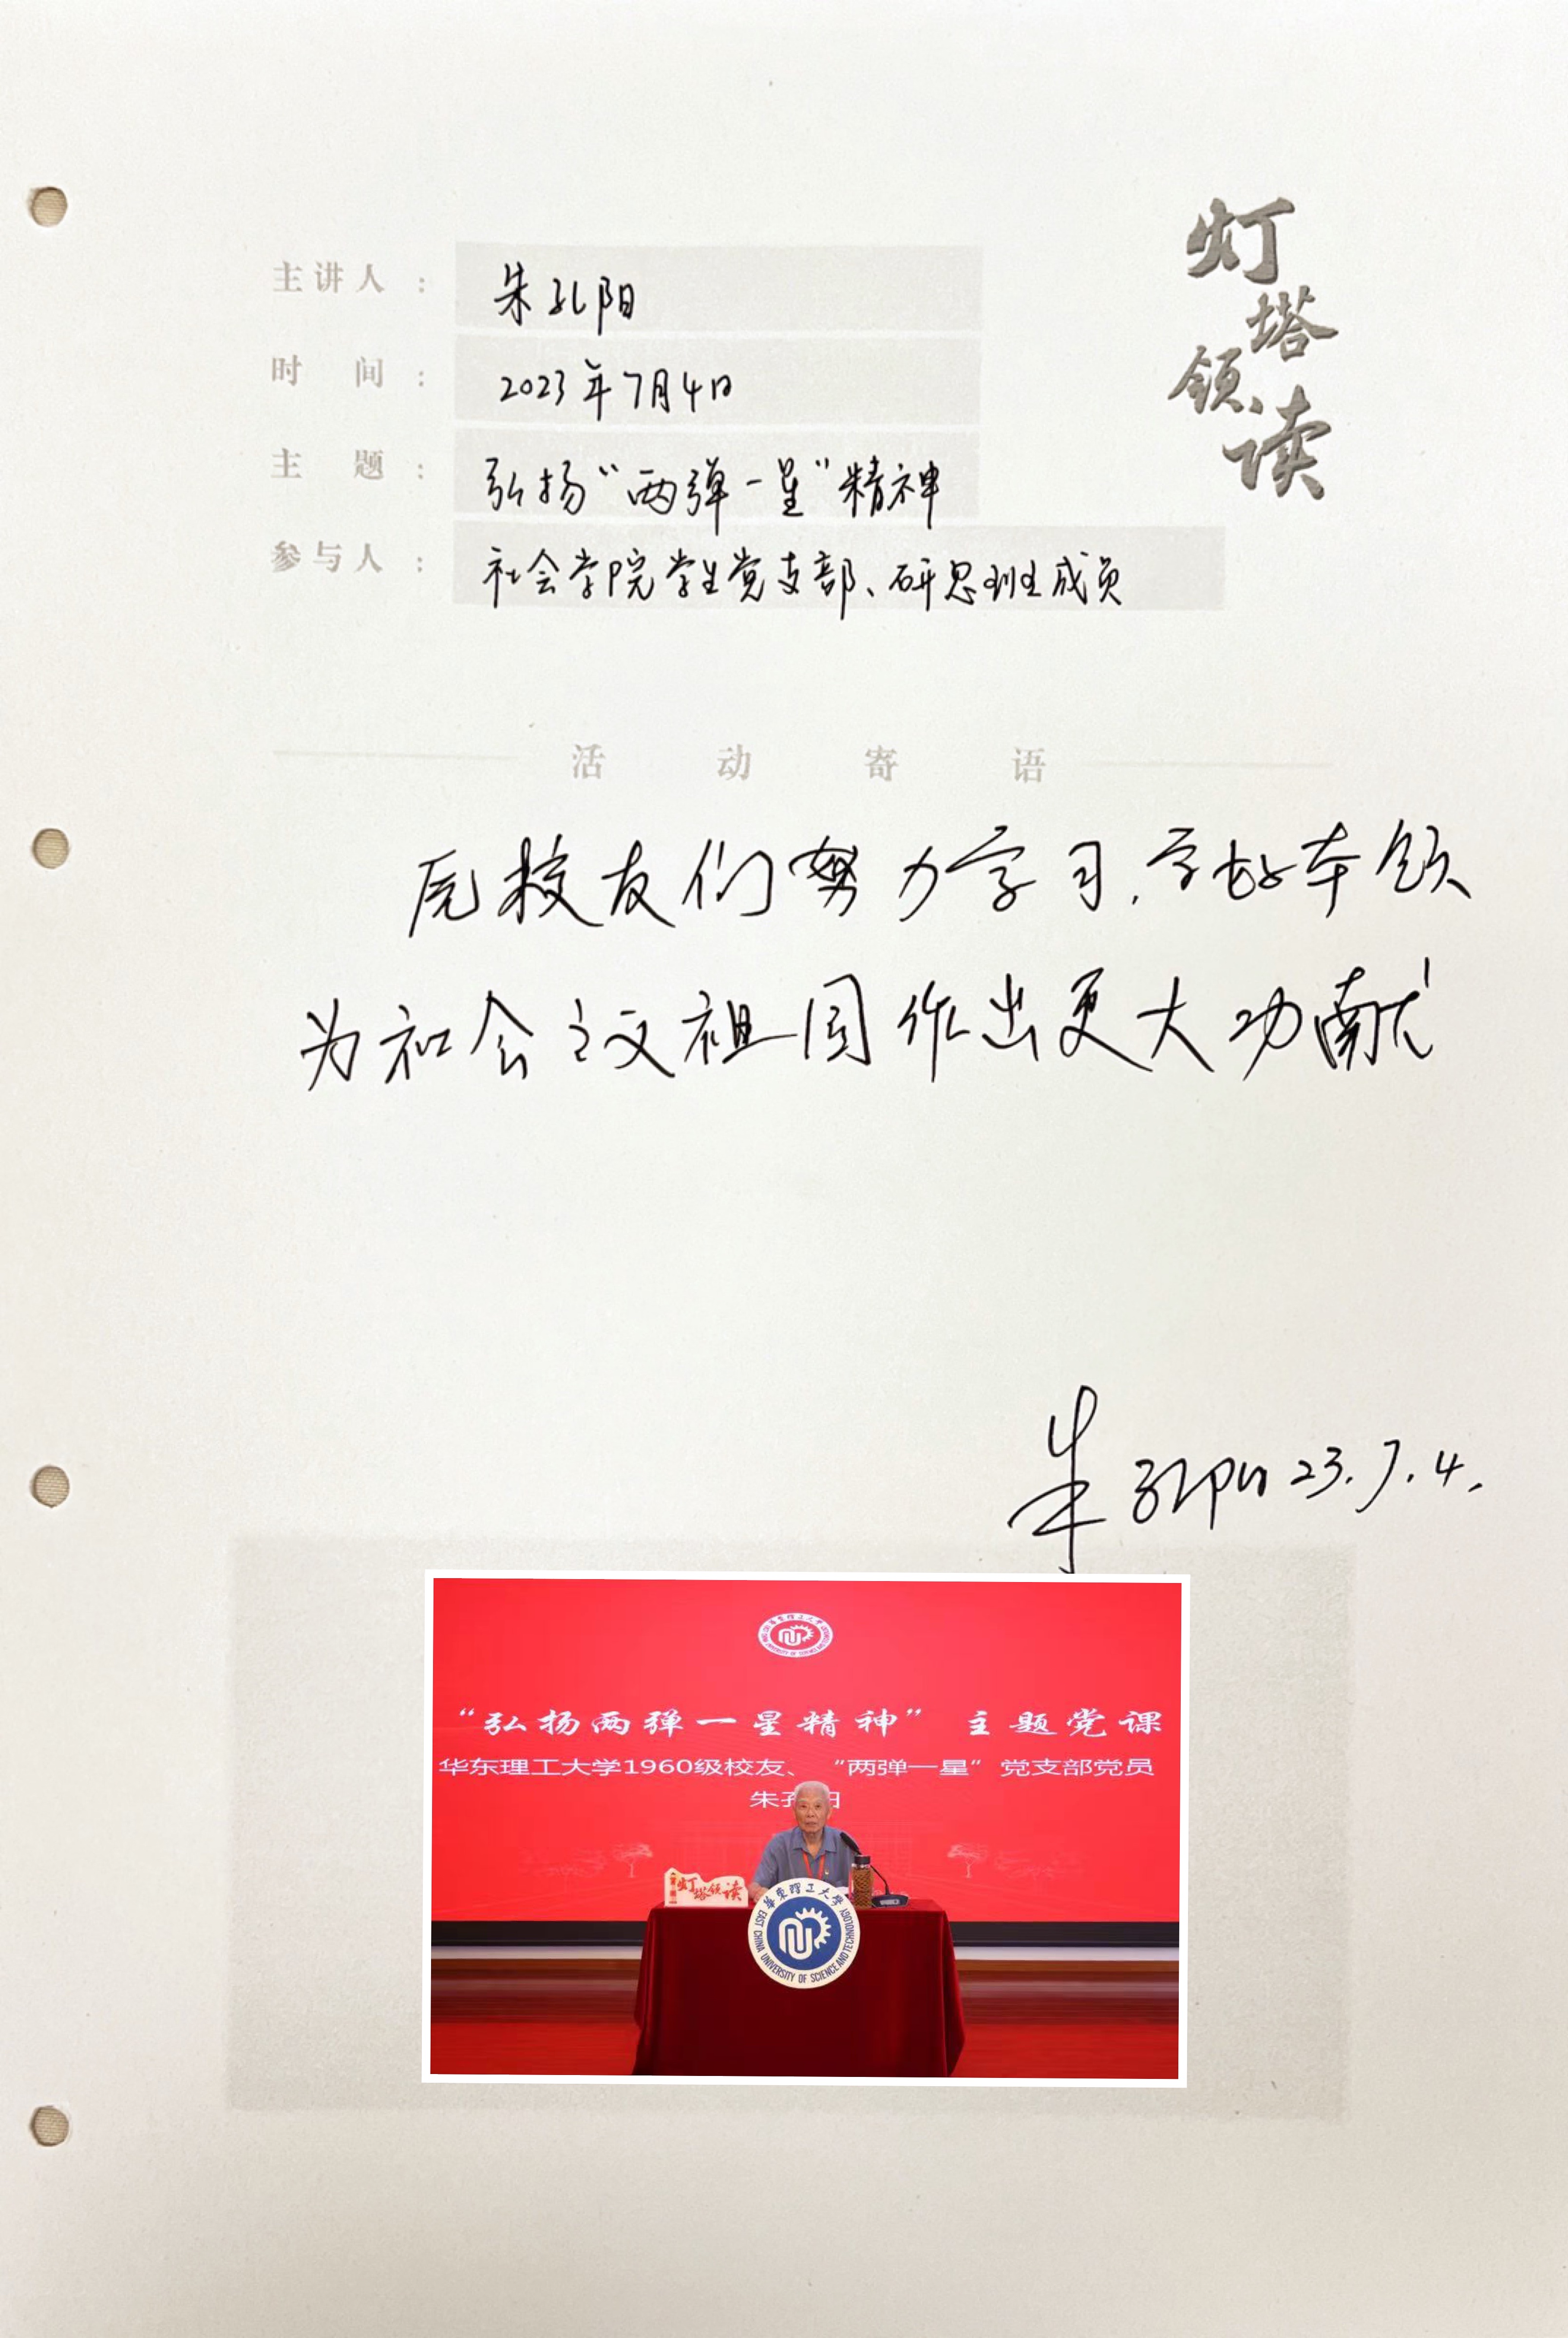 灯塔领读
主讲人：朱孔阳
时间：2023年7月4日
主题：弘扬“两弹一星”精神
参与人：社会学院学生党支部、研思班成员
活动寄语
愿校友们努力学习，学好本领
为社会主义祖国作出更大功献
朱孔阳 23.7.4.
“弘扬两弹一星精神”主题党课
华东理工大学1960级校友、“两弹一星”党支部党员
朱孔阳
灯塔领读
华东理工大学
EAST CHINA UNIVERSITY OF SCIENCE AND TECHNOLOGY